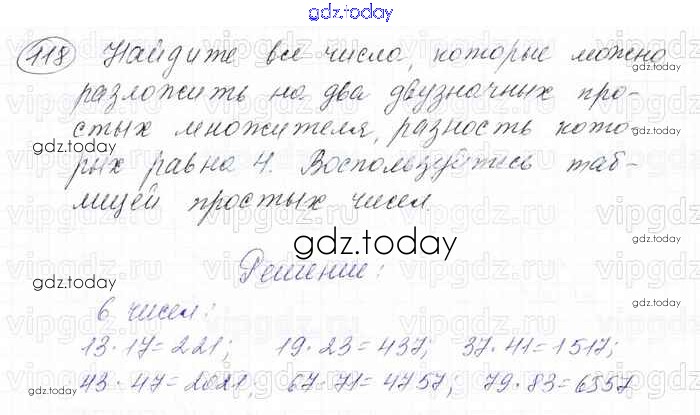 gdz.today
118 Найдите все числа, которые можно
разложить на два двузначных про-
стых множителя, разность кото-
рых равна 4. Воспользуйтесь таб-
лицей простых чисел.
gdz.today
gdz.today
gdz.today
Решение:
6 чисел:
13·17=221; 19·23=437; 37·41=1517;
43·47=2021, 67·71=4757; 79·83=6557
gdz.today
gdz.today